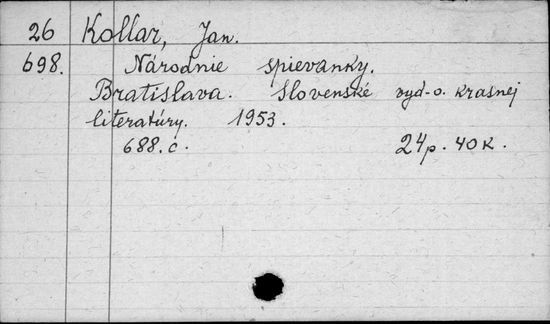 26 Kollar, Jan.
698. Národnie spievanky.
Bratislava. Slovenské vyd-o. krasnej
literatúry. 1953.
688.c. 24p. 40к.